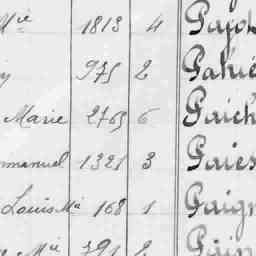 Mie 1813 4 Pajol
y 975 2 Pahi
Marie 2765 6 Paich
mmanuel 1321 3 Paies
Louis Ma 168 1 Paign
Mie 791 2 Pain